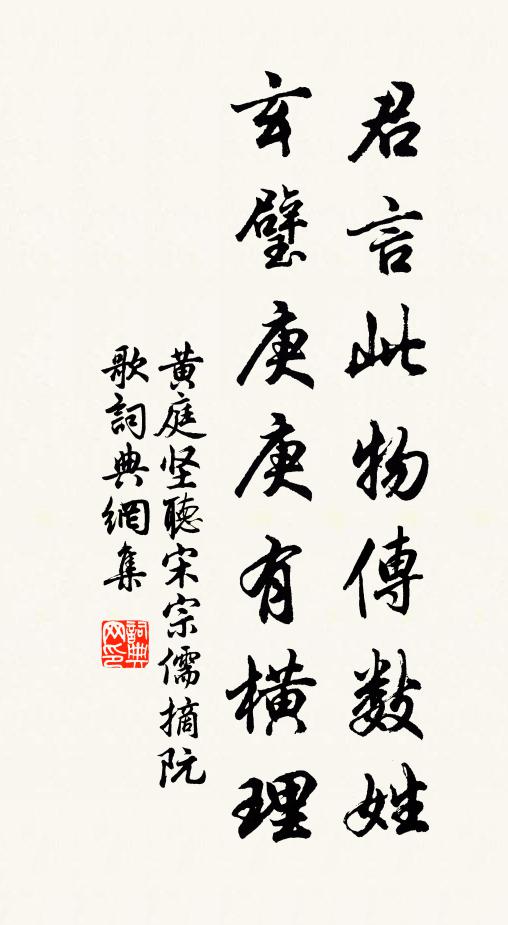 君言此物傳數姓
玄璧庚庚有橫理
黃庭坚聽宋宗儒摘阮
歌詞典網集
詞典
网印